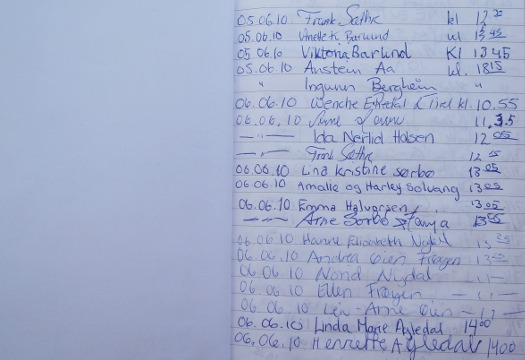 05.06.10 Frank Sæthre kl 12 20
05.06.10 Vinette K Barlund kl 13 45
05.06.10 Viktoria Barlund Kl 13 45
05.06.10 Anstein Aa kl. 18 15
" Ingunn Bergheim "
06.06.10 Wenche & Tirel kl. 10.55
06.06.10 11.35
— " — Ida Nerlid Halsen 12 05
— " — Frank Sæthre 12
06.06.10 Lina Kristine Sørbø 13 05
06.06.10 Amalie og Harley Solvang 13 05
06.06.10 Emma Halvorsen 13 05
— " — Arne Sørbø Tanja 13 05
06.06.10 Hanne Elisabeth Nydal 13
06.06.10 Andrea Øien Frøgen 13
06.06.10 Nydal — " —
06.06.10 Ellen Frøgen — " —
06.06.10 Arne Øien — " —
06.06.10 Linda Marie Agledal 14 00
06.06.10 Henriette Agledal 14 00